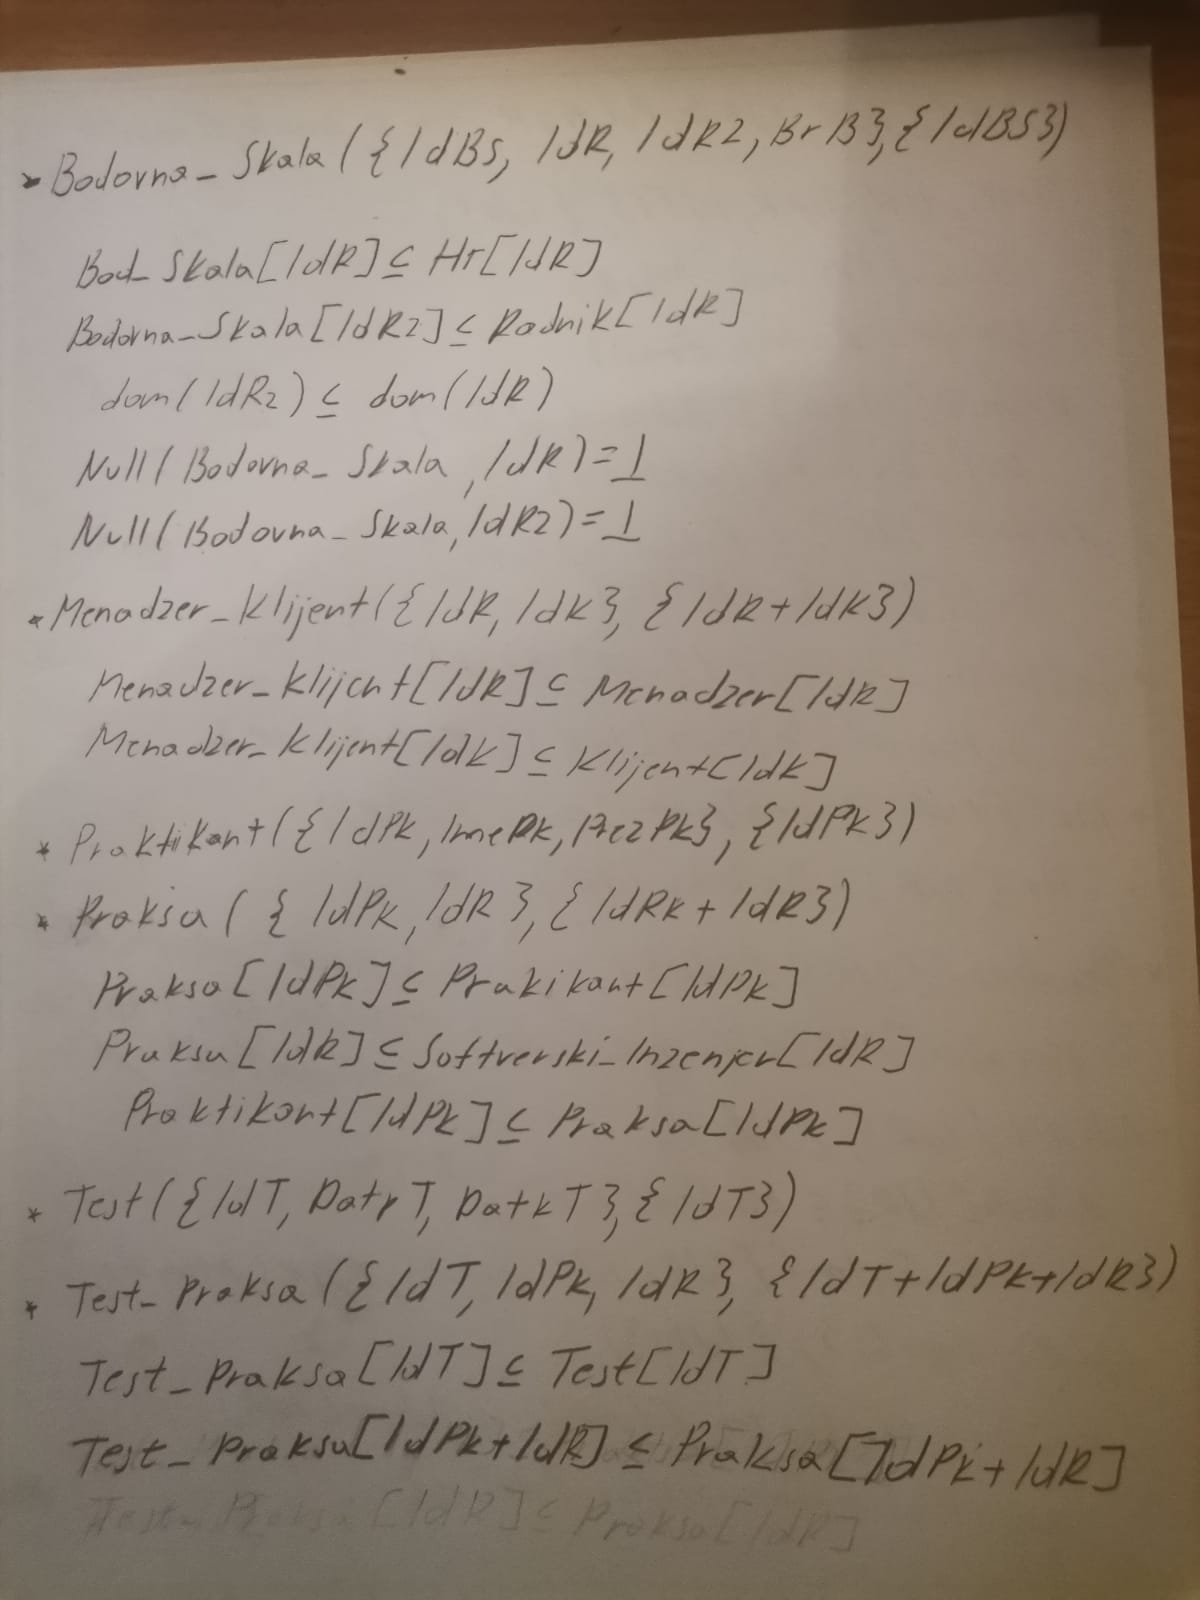 * Bodovna_Skala({IdBS, IdR, IdR2, BrB},{IdBS})
Bod_Skala[IdR]⊆Hr[IdR]
Bodovna_Skala[IdR2]⊆Radnik[IdR]
dom(IdR2)⊆dom(IdR)
Null(Bodovna_Skala,IdR)=⊥
Null(Bodovna_Skala,IdR2)=⊥
* Menadzer_Klijent({IdR, IdK},{IdR+IdK})
Menadzer_Klijent[IdR]⊆Menadzer[IdR]
Menadzer_Klijent[IdK]⊆Klijent[IdK]
* Praktikant({IdPk, ImePk, PrezPk},{IdPk})
* Praksa({IdPk, IdR},{IdRk+IdR})
Praksa[IdPk]⊆Prakikant[IdPk]
Praksa[IdR]⊆Softverski_Inzenjer[IdR]
Praktikant[IdPk]⊆Praksa[IdPk]
* Test({IdT, DatpT, DatkT},{IdT})
* Test_Praksa({IdT, IdPk, IdR},{IdT+IdPk+IdR})
Test_Praksa[IdT]⊆Test[IdT]
Test_Praksa[IdPk+IdR]⊆Praksa[IdPk+IdR]
Test_Praksa[IdR]⊆Praksa[IdR]